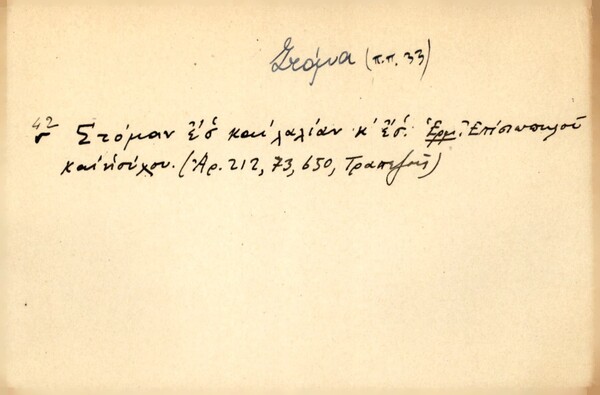 Στόμα (π.π. 33)
42 Στόμαν ἔ'σ̌ καὶ λαλίαν κ' ἔσ̌. Ἑρμ. Ἐπὶ σιωπηλοῦ
καὶ ἡσύχου. (Ἀρ. 212, 73, 650, Τραπεζοῦς)